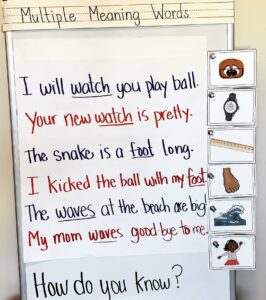 Multiple Meaning Words
I will watch you play ball.
Your new watch is pretty.
The snake is a foot long.
I kicked the ball with my foot.
The waves at the beach are big
My mom waves good-bye to me.
How do you know?